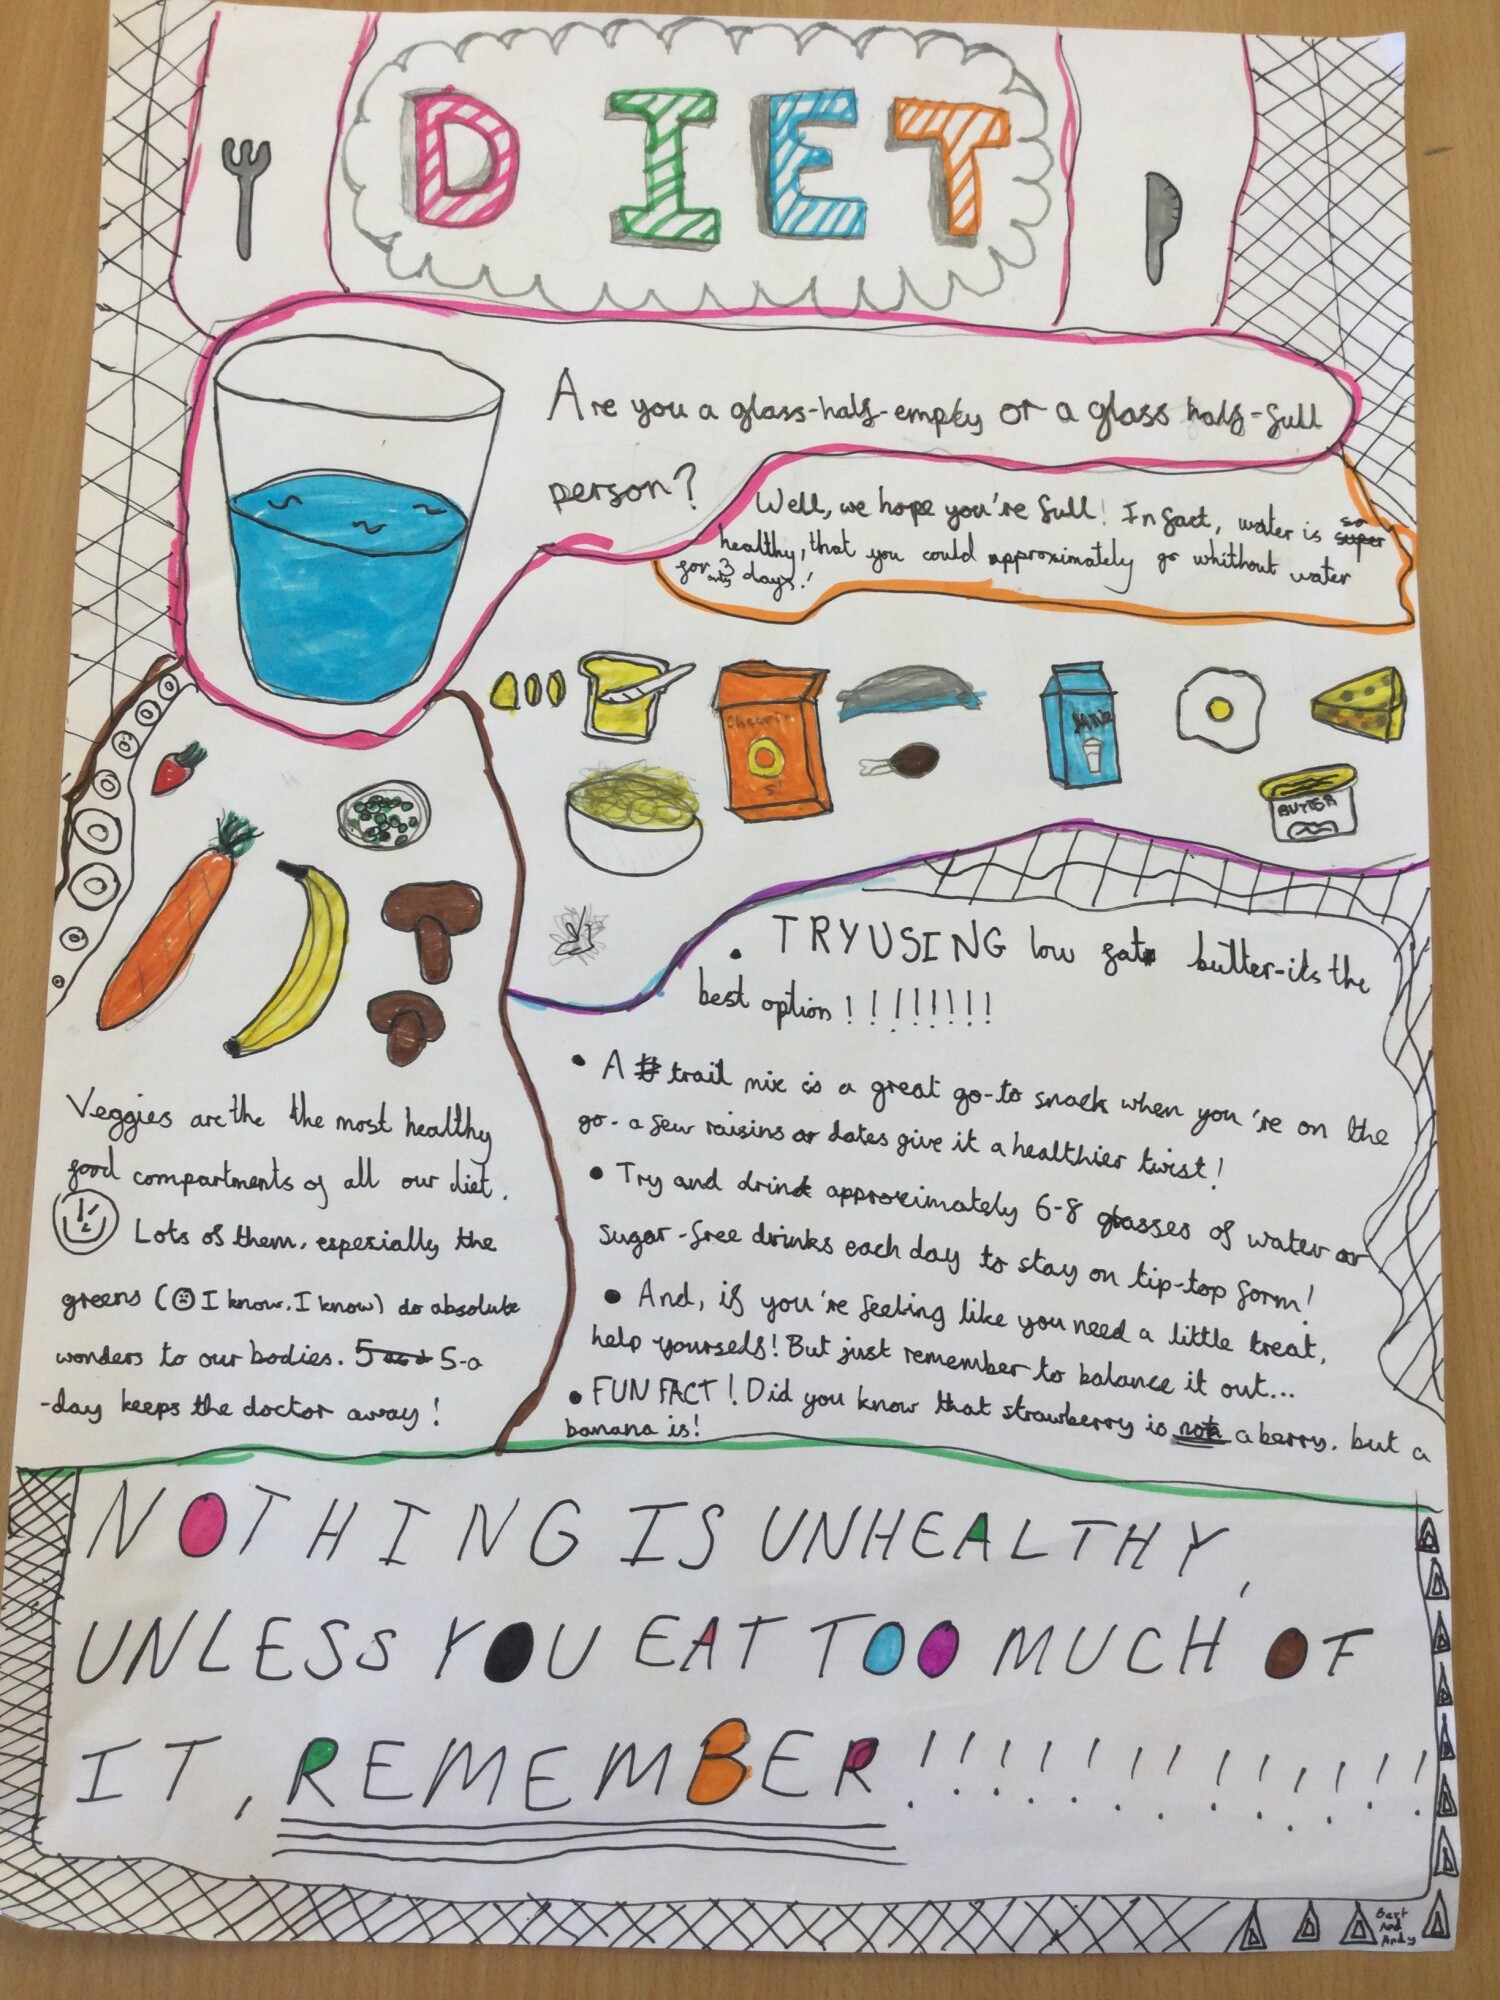 DIET
Are you a glass-half-empty or a glass half-full
person?
Well, we hope you're full! In fact, water is so
healthy, that you could approximately go whithout water
for only 3 days!
Cheerio
s!
Milk
BUTTER
Veggies are the the most healthy
food compartments of all our diet.
Lots of them, especially the
greens (I know, I know) do absolute
wonders to our bodies. 5-a
-day keeps the doctor away!
• TRY USING low fat butter-its the
best option!!!!!!!!
• A trail mix is a great go-to snack when you're on the
go - a few raisins or dates give it a healthier twist!
• Try and drink approximately 6-8 glasses of water or
sugar-free drinks each day to stay on tip-top form!
• And, if you're feeling like you need a little treat,
help yourself! But just remember to balance it out...
• FUN FACT! Did you know that strawberry is not a berry, but a
banana is!
NOTHING IS UNHEALTHY,
UNLESS YOU EAT TOO MUCH OF
IT, REMEMBER!!!!!!!!!!!!!
And
Andy